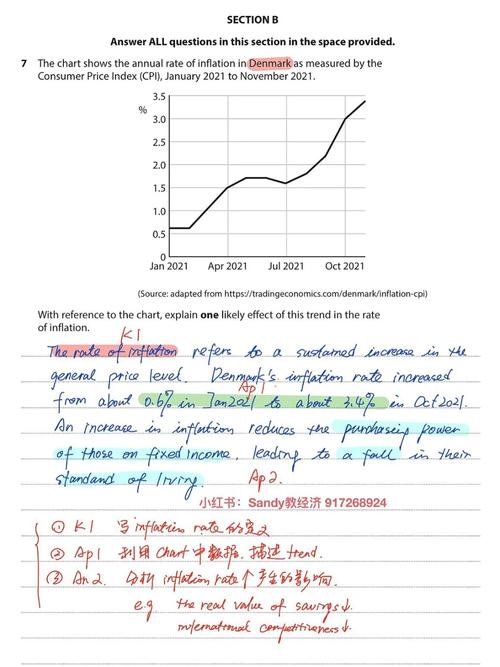 SECTION B
Answer ALL questions in this section in the space provided.
7 The chart shows the annual rate of inflation in Denmark as measured by the
Consumer Price Index (CPI), January 2021 to November 2021.
%
3.5
3.0
2.5
2.0
1.5
1.0
0.5
0
Jan 2021 Apr 2021 Jul 2021 Oct 2021
(Source: adapted from https://tradingeconomics.com/denmark/inflation-cpi)
With reference to the chart, explain one likely effect of this trend in the rate
of inflation.
K1
The rate of inflation refers to a sustained increase in the
general price level. Denmark's inflation rate increased
Ap1
from about 0.6% in Jan2021 to about 3.4% in Oct 2021.
An increase in inflation reduces the purchasing power
of those on fixed income, leading to a fall in their
standard of living. Ap2.
小红书：Sandy教经济 917268924
① K1 写inflation rate的定义
② Ap1 利用Chart中数据，描述trend.
③ An2. 分析inflation rate个产生的影响.
e.g. the real value of savings↓.
international competitiveness↓.